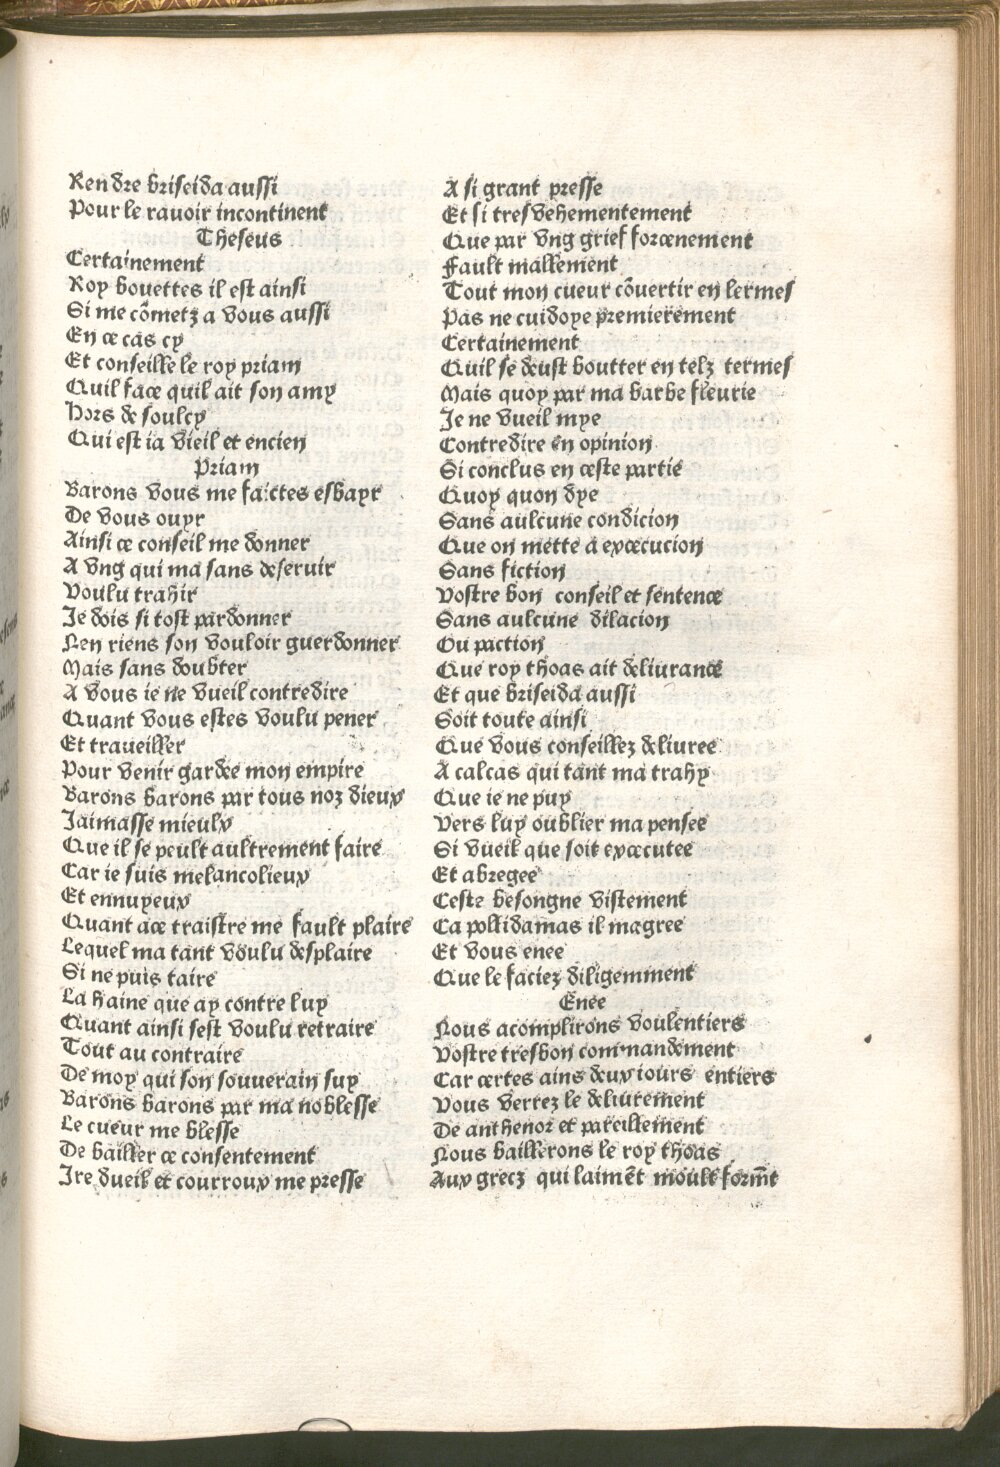 Rendre briseida aussi
Pour le rauoir incontinent
Theseus
Certainement
Roy bouettes il est ainsi
Si me cõmetz a vous aussi
En ce cas cy
Et conseille le roy priam
Quil face quil ait son amy
Hors de soulcy
Qui est ia vieil et encien
Priam
Barons vous me faictes esbayr
De vous ouyr
Ainsi ce conseil me donner
A vng qui ma sans deseruir
Voulu trahir
Je dois si tost pardonner
Len riens son vouloir guerdonner
Mais sans doubter
A vous ie ne vueil contredire
Quant vous estes voulu pener
Et traueiller
Pour venir gardce mon empire
Barons barons par tous noz dieux
Jaimasse mieulx
Que il se peult aultrement faire
Car ie suis melancolieux
Et ennuyeux
Quant ace traistre me fault plaire
Lequel ma tant voulu desplaire
Si ne puis taire
La haine que ay contre luy
Quant ainsi sest voulu retraire
Tout au contraire
De moy qui son souuerain suy
Barons barons par ma noblesse
Le cueur me blesse
De bailler ce consentement
Ire dueil et courroux me presse
A si grant presse
Et si tresvehementement
Que par vng grief forcenement
Fault mallement
Tout mon cueur cõuertir en lermes
Pas ne cuidoye premierement
Certainement
Quil se deust boutter en telz termes
Mais quoy par ma barbe fleurie
Je ne vueil mye
Contredire en opinion
Si conclus en ceste partie
Quoy quon dye
Sans aulcune condicion
Que on mette a excecucion
Sans fiction
Vostre bon conseil et sentence
Sans aulcune dilacion
Ou paction
Que roy thoas ait deliurance
Et que briseida aussi
Soit toute ainsi
Que vous conseillez deliuree
A calcas qui tant ma trahy
Que ie ne puy
Vers luy oublier ma pensee
Si vueil que soit excecutee
Et abregee
Ceste besongne vistement
Ca pollidamas il magree
Et vous enee
Que le faciez diligemment
Enee
Nous acomplirons voulentiers
Vostre tresbon commandement
Car certes ains deux iours entiers
Vous verrez le deliurement
De anthenor et pareillement
Nous baillerons le roy thoas
Aux grecz qui laimẽt moult formẽt